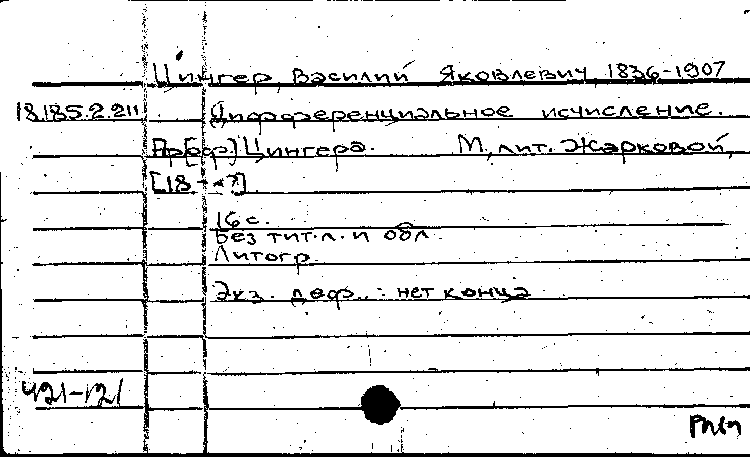 Цингер, Василий Яковлевич, 1836-1907
18.185.2.211 Дифференциальное исчисление.
Пр[оф] Цингера. М., лит. Жарковой,
[18--?]
16 с.
Без тит.л. и обл.
Литогр.
Экз. деф.: нет конца
421-121